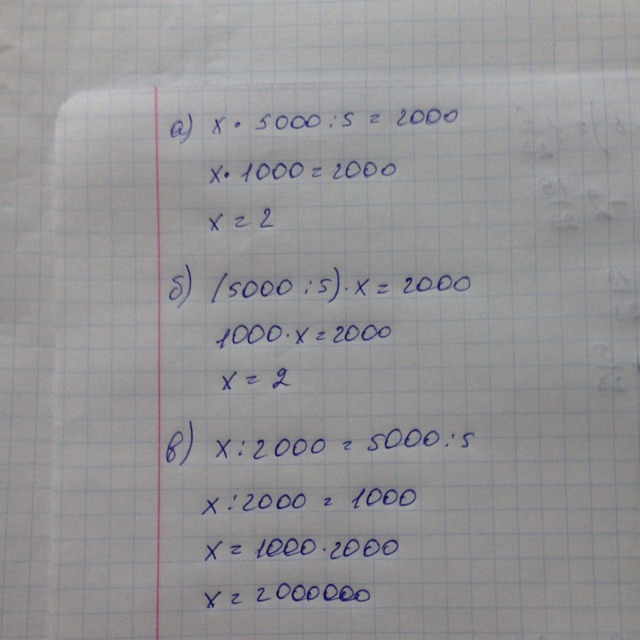 а) x · 5000 : 5 = 2000
x · 1000 = 2000
x = 2
б) (5000 : 5) · x = 2000
1000 · x = 2000
x = 2
в) x : 2000 = 5000 : 5
x : 2000 = 1000
x = 1000 · 2000
x = 2000000